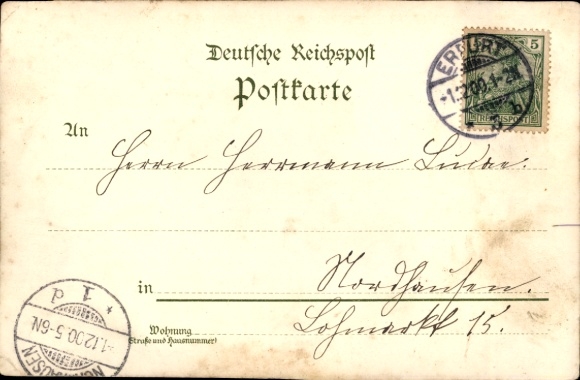 Deutsche Reichspost
Postkarte
5
REICHSPOST
ERFURT
-1.12.00.1-2N
* 3 b
An
Herrn Herrmann Ludae.
in Nordhausen.
Wohnung
(Straße und Hausnummer)
Lohmarkt 15.
NORDHAUSEN
-1.1200.5-6N.
* 1 d